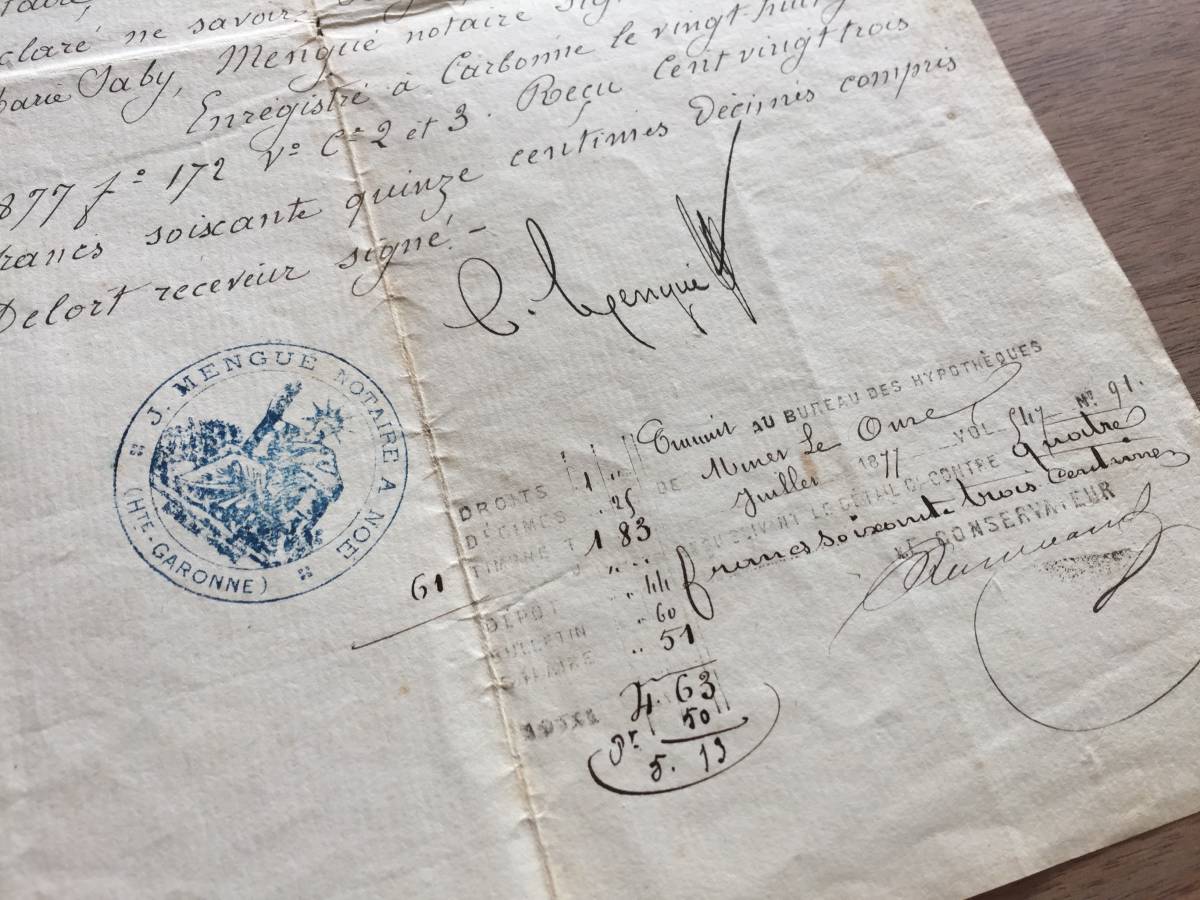 claré ne savoir
Marie Saby, Mengué notaire
Enregistré à Carbonne le vingt huit
1877 f° 172 V° Ce 2 et 3. Reçu Cent vingt trois
francs soixante quinze centimes Décimes compris
Delort receveur signé.-
C. Mengué
J. MENGUE NOTAIRE A NOE
(HTE-GARONNE)
AU BUREAU DES HYPOTHÈQUES
DE Muret Le Onze
Juillet 1877 VOL. 547 N° 91.
SUIVANT LE DÉTAIL CI-CONTRE quatre
francs soixante trois centimes
LE CONSERVATEUR
DROITS 1
DÉCIMES 25
TIMBRE 1 83
61
44
DÉPOT 60
BULLETIN 51
SALAIRE
TOTAL 4.63
50
5.13